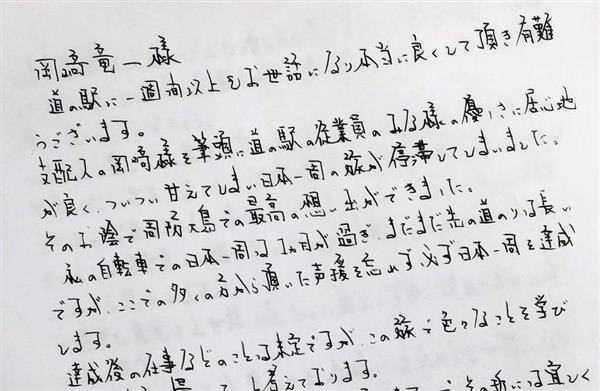 岡崎竜一様
道の駅に一週間以上もお世話になり本当に良くして頂き有難
うございます。
支配人の岡崎様を筆頭に道の駅の従業員のみな様の優しさに居心地
が良く、ついつい甘えてしまい日本一周の旅が停滞してしまいました。
そのお陰で周防大島での最高の想い出ができました。
私の自転車での日本一周は1ヶ月が過ぎ、まだまだ先の道のりは長い
ですが、ここでの多くの方から頂いた声援を忘れず必ず日本一周を達成
します。
達成後の仕事などのことは未定ですが、この旅で色々なことを学び
と考えております。
その折には宜しく